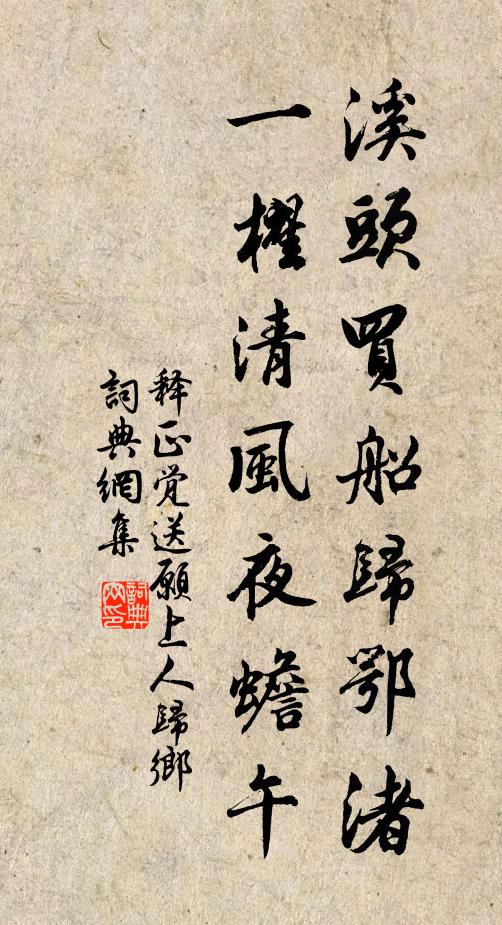 溪頭買船歸鄂渚
一櫂清風夜蟾午
释正觉送願上人歸鄉
詞典網集
詞典網印